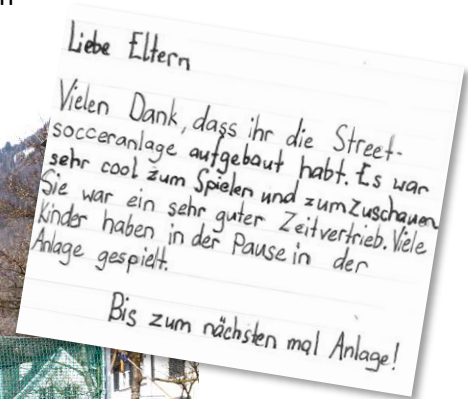 Liebe Eltern
Vielen Dank, dass ihr die Street-
socceranlage aufgebaut habt. Es war
sehr cool zum Spielen und zum Zuschauen
Sie war ein sehr guter Zeitvertrieb. Viele
Kinder haben in der Pause in der
Anlage gespielt.
Bis zum nächsten mal Anlage!